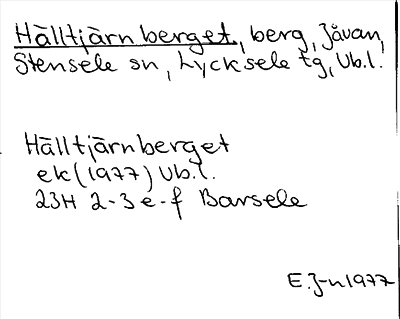 Hälltjärnberget, berg, Jåvan,
Stensele sn, Lycksele tg, Vb.l.
Hälltjärnberget
ek (1977) Vb.l.
23H 2-3 e-f Barsele
E.J-n 1977